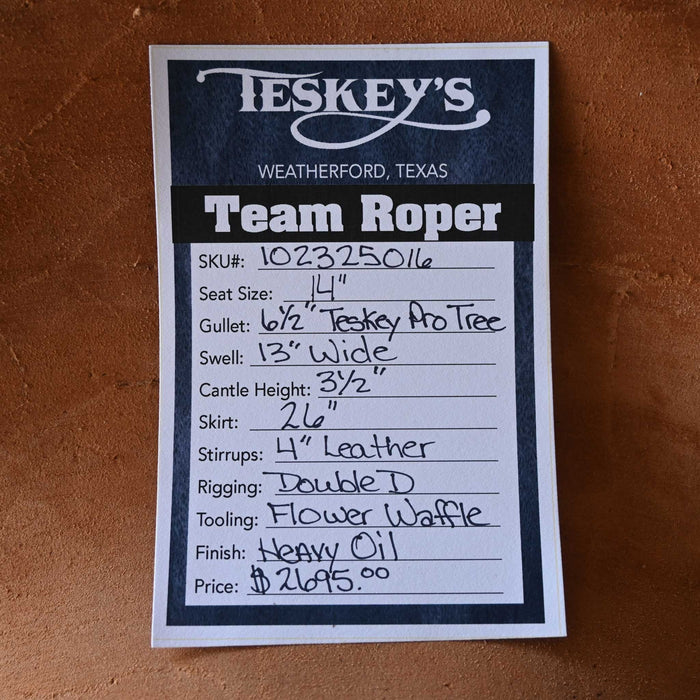 TESKEY'S
WEATHERFORD, TEXAS
Team Roper
SKU#: 102325016
Seat Size: 14"
Gullet: 6½" Teskey Pro Tree
Swell: 13" Wide
Cantle Height: 3½"
Skirt: 26"
Stirrups: 4" Leather
Rigging: Double D
Tooling: Flower Waffle
Finish: Heavy Oil
Price: $2695.00